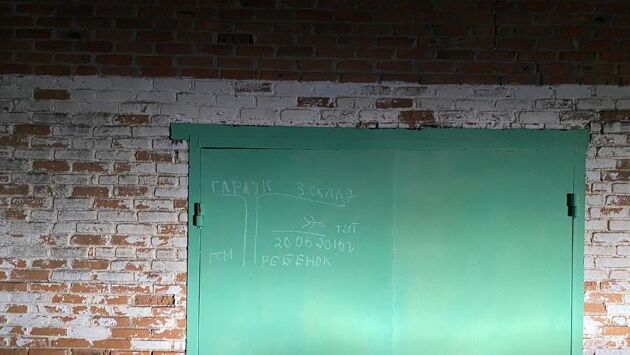 ГАРАЖ 3 СКЛАД
ТУТ
20.06.2016г
ГСМ РЕБЕНОК